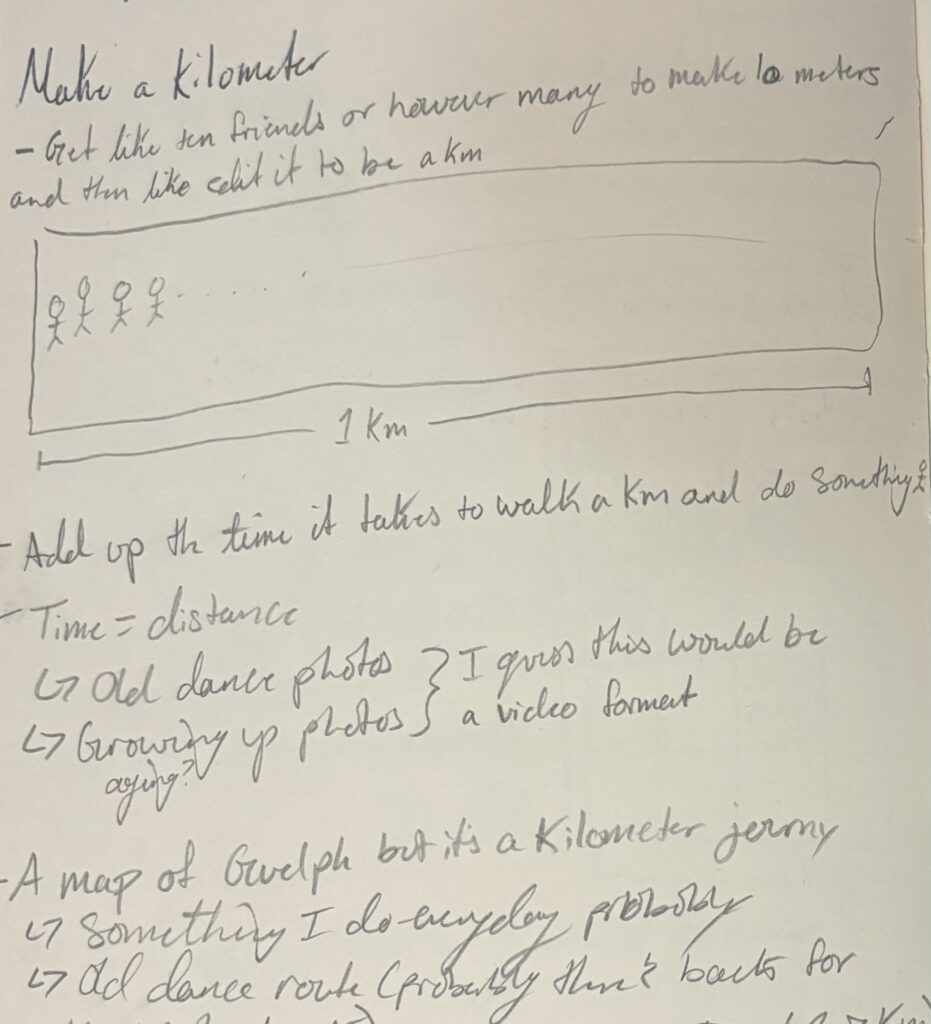 Make a Kilometer
- Get like ten friends or however many to make 10 meters
and then like edit it to be a km
1 Km
- Add up the time it takes to walk a Km and do something
- Time = distance
↳ Old dance photos } I guess this would be
↳ Growing up photos } a video format
aging?
- A map of Guelph but it's a Kilometer jerny
↳ Something I do everyday probably
↳ Old dance route (probably there & back for